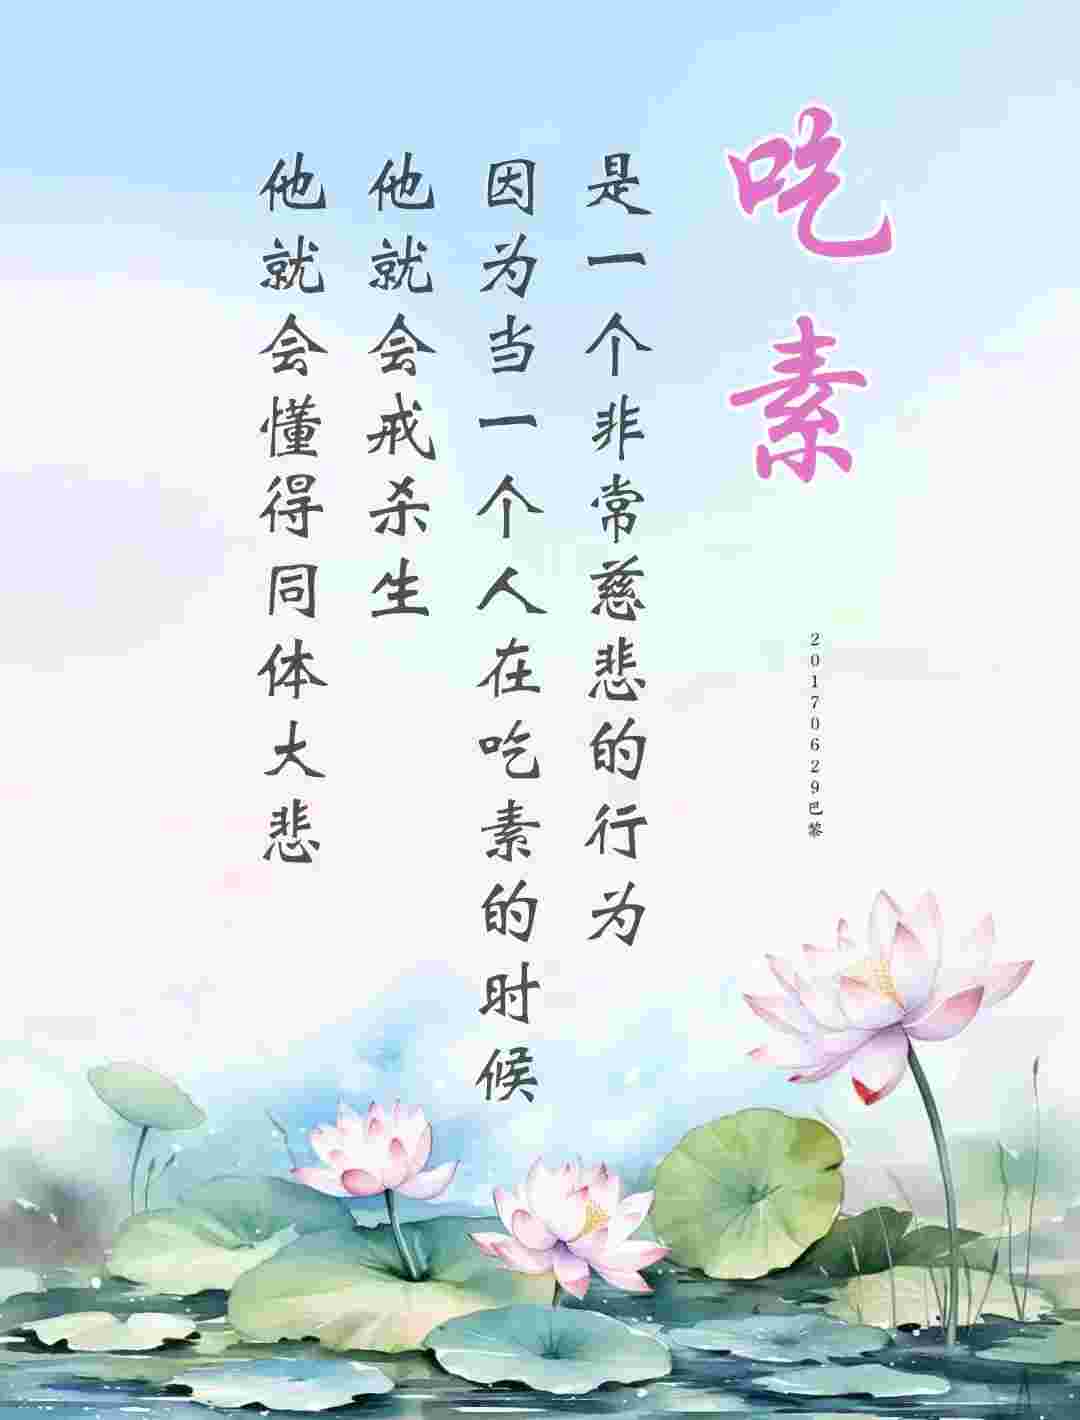 吃素
20170629巴黎
是一个非常慈悲的行为
因为当一个人在吃素的时候
他就会戒杀生
他就会懂得同体大悲